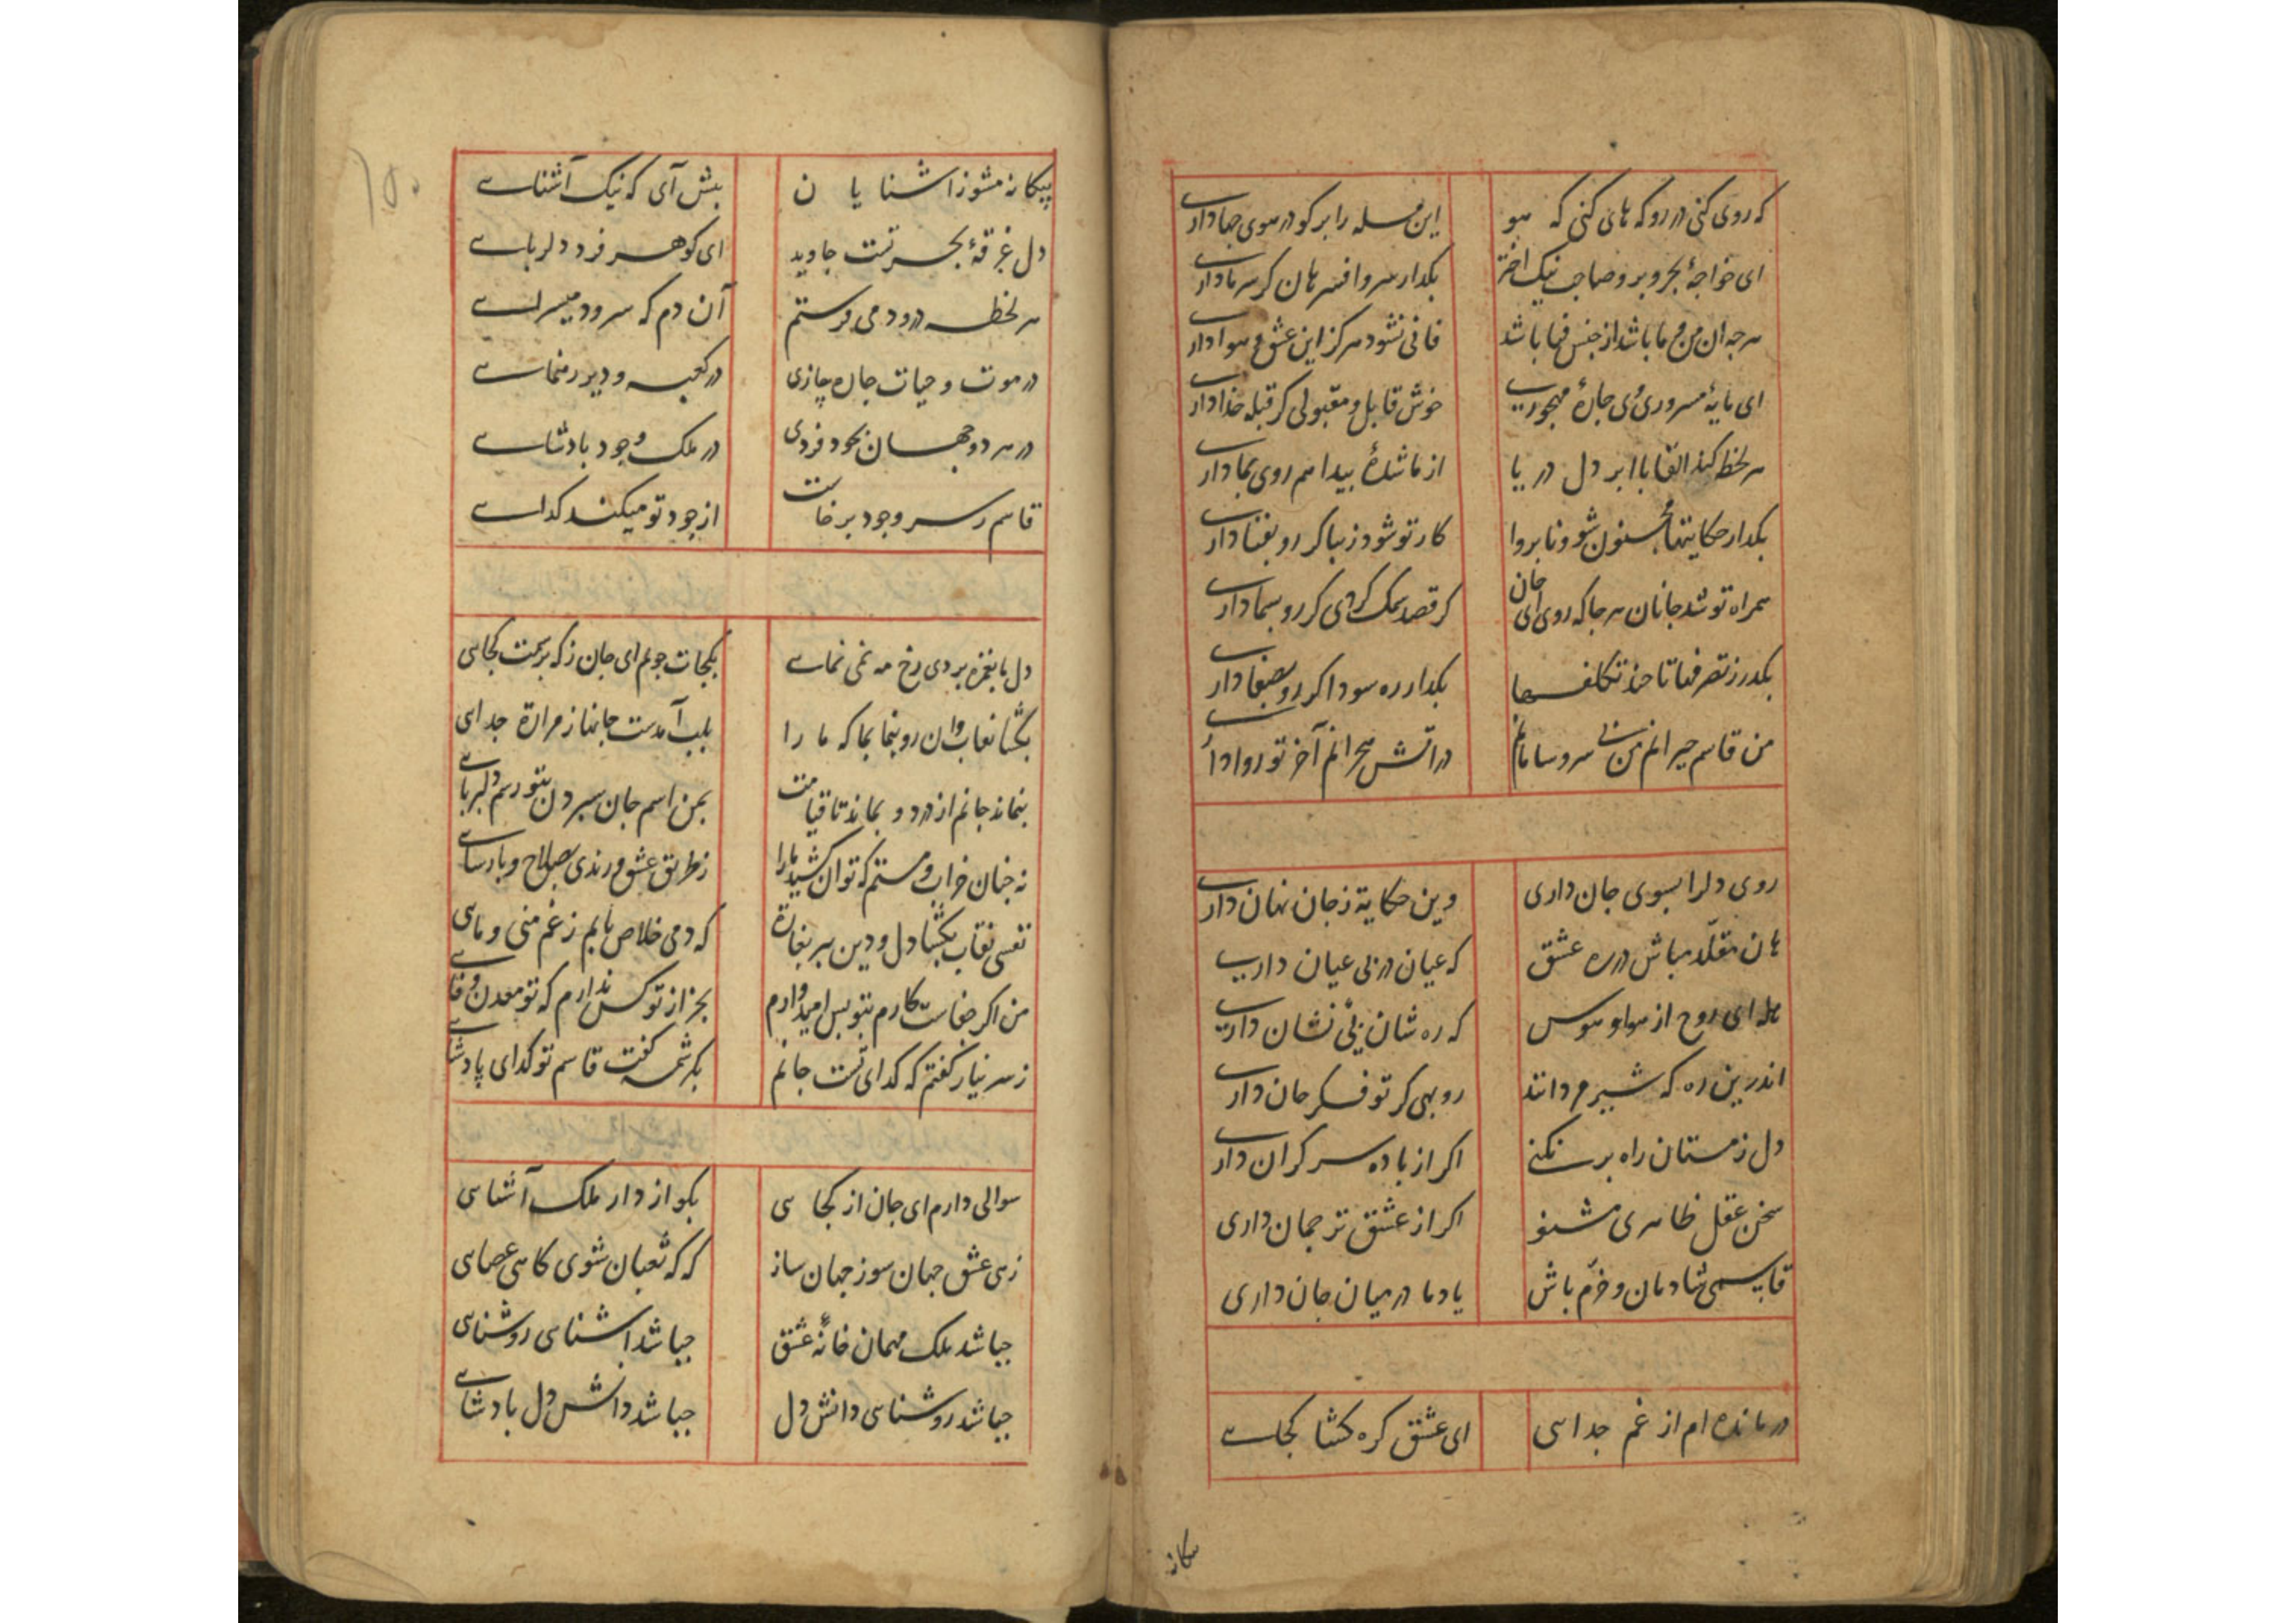 که روی کنی در رو که های کنی که هو این مسله را بر کو در موی جها داری
ای خواجهٔ بحر و بر و صاحب نیک اختر بکدار سر و افسر هان کر سر ما داری
هر چه ان من و ما باشد از جنس فنا باشد فانی نشود هرکز این عشق و هوا داری
ای مایهٔ مسروری وی جارهٔ مهجوری خوش قابل و مقبولی کر قبله خدا داری
هر لحظه کند القا با ابر دل دریا از ما شدهٔ بیدا هم روی بما داری
بکدار حکایتها مجنون شو و نابروا کار تو شود زیبا کر رو بفنا داری
همراه تو شد جانان هر جا که روی ای جان کر قصد سمک کردی کر رو بسما داری
بکدر ز تصرفها تا حد تکلفها بکدار ره سودا کر رو بصفا داری
من قاسم حیرانم من بی سر و سامانم در اتش هجرانم آخر تو روا داری
روی دلرا بسوی جان داری وین حکایة ز جان نهان داری
هان مقلّد مباش در ره عشق که عیان در بی عیان داری
هله ای روح از هوا و هوس که ره شان بی نشان داری
اندرین ره که شیر مردانند روبهی کر تو فکر جان داری
دل ز مستان راه بر نکنی اکر از باده سر کران داری
سخن عقل ظاهری مشنو اکر از عشق ترجمان داری
قاسمی شادمان و خرّم باش یاد ما در میان جان داری
در مانده ام از غم جدایی ای عشق کره کشا کجایی
بیکانه مشو ز اشنایان بیش آی که نیک آشنایی
دل غرقهٔ بحر تست جاوید ای کوهر فرد دلربایی
هر لحظه درود می فرستم آن دم که سرود میسرایی
در موت و حیات جاره جازی در کعبه و دیر رهنمایی
در هر دو جهان بخود فردی در ملک وجود بادشایی
قاسم ز سر وجود برخاست از جود تو میکند کدایی
دل ما بغمزه بردی رخ مه نمی نمایی بکجات جویم ای جان ز که برسمت کجایی
بکشا نقاب و ان رو بنما بما که ما را بلب آمدست جانها ز مرارة جدایی
بنماند جانم از درد و بماند تا قیامت ز من اسم جان سبردن ز تو رسم دلربایی
نه جنان خراب و مستم که توان کشید ما را ز طریق عشق و رندی بصلاح و بارسایی
نفسی نقاب بکشا دل و دین ببر بغارة که دمی خلاص یابم ز غم منی و مایی
من اکر جفاست کارم بتو بس امید وارم بجز از تو کس ندارم که تو معدن وفایی
ز سر نیاز کفتم که کدای تست جانم بکرشمه کفت قاسم تو کدای پادشایی
سوالی دارم ای جان از کجایی بکو از دار ملک آشنایی
زهی عشق جهان سوز جهان ساز که که ثعبان شوی کاهی عصایی
جباشد ملک مهمان خانهٔ عشق جباشد اشنایی روشنایی
جباشد روشنایی دانش دل جباشد دانش دل بادشایی